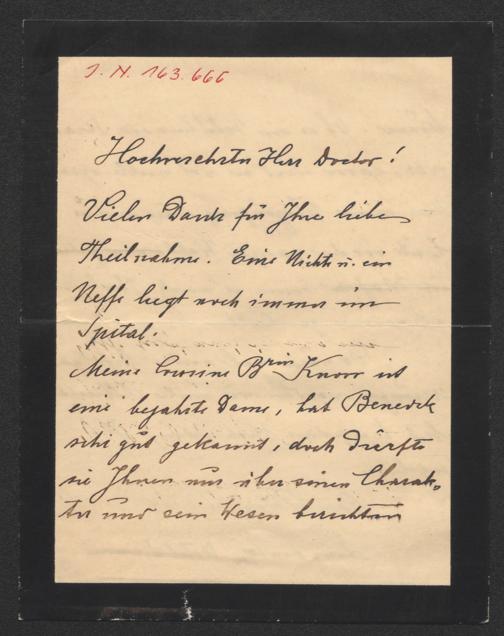 J. N. 163.666
Hochverehrter Herr Doctor!
Vielen Dank für Ihre liebe
Theilnahme. Eine Nichte u. ein
Neffe liegt noch immer im
Spital.
Meine Cousine Brin Knorr ist
eine bejahrte Dame, hat Benedek
sehr gut gekannt, doch dürfte
sie Ihnen nur über seinen Charak-
ter und sein Wesen berichten